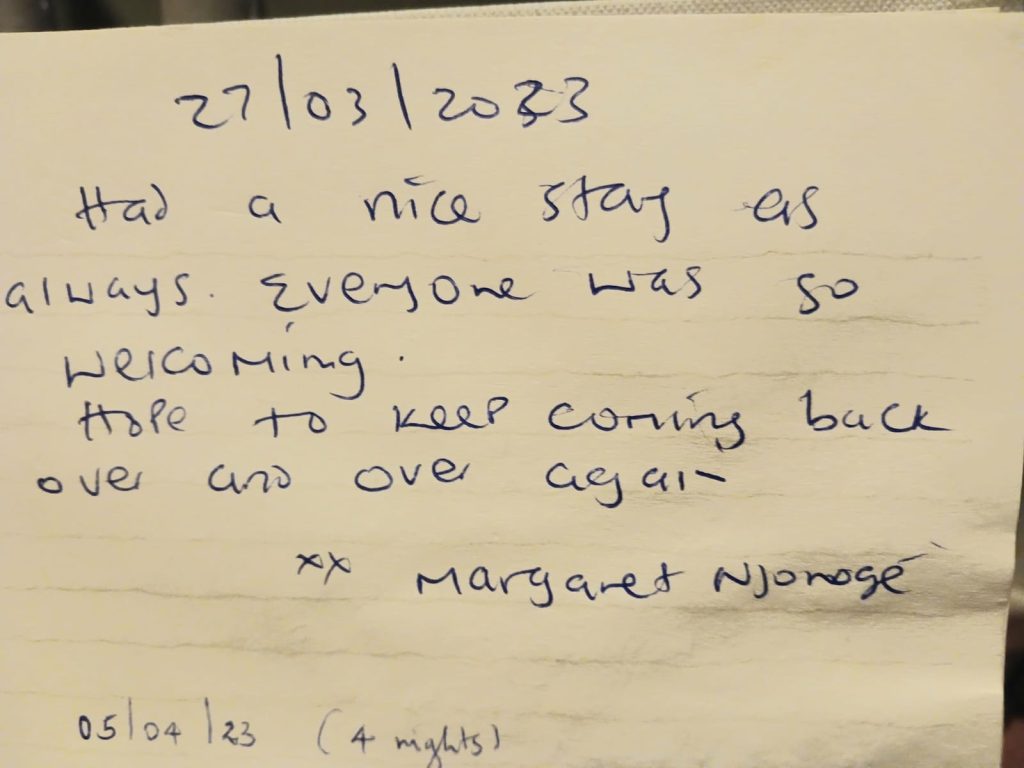 27/03/2023
Had a nice stay as
always. Everyone was so
welcoming.
Hope to keep coming back
over and over again
xx Margaret Njoroge
05/04/23 (4 nights)